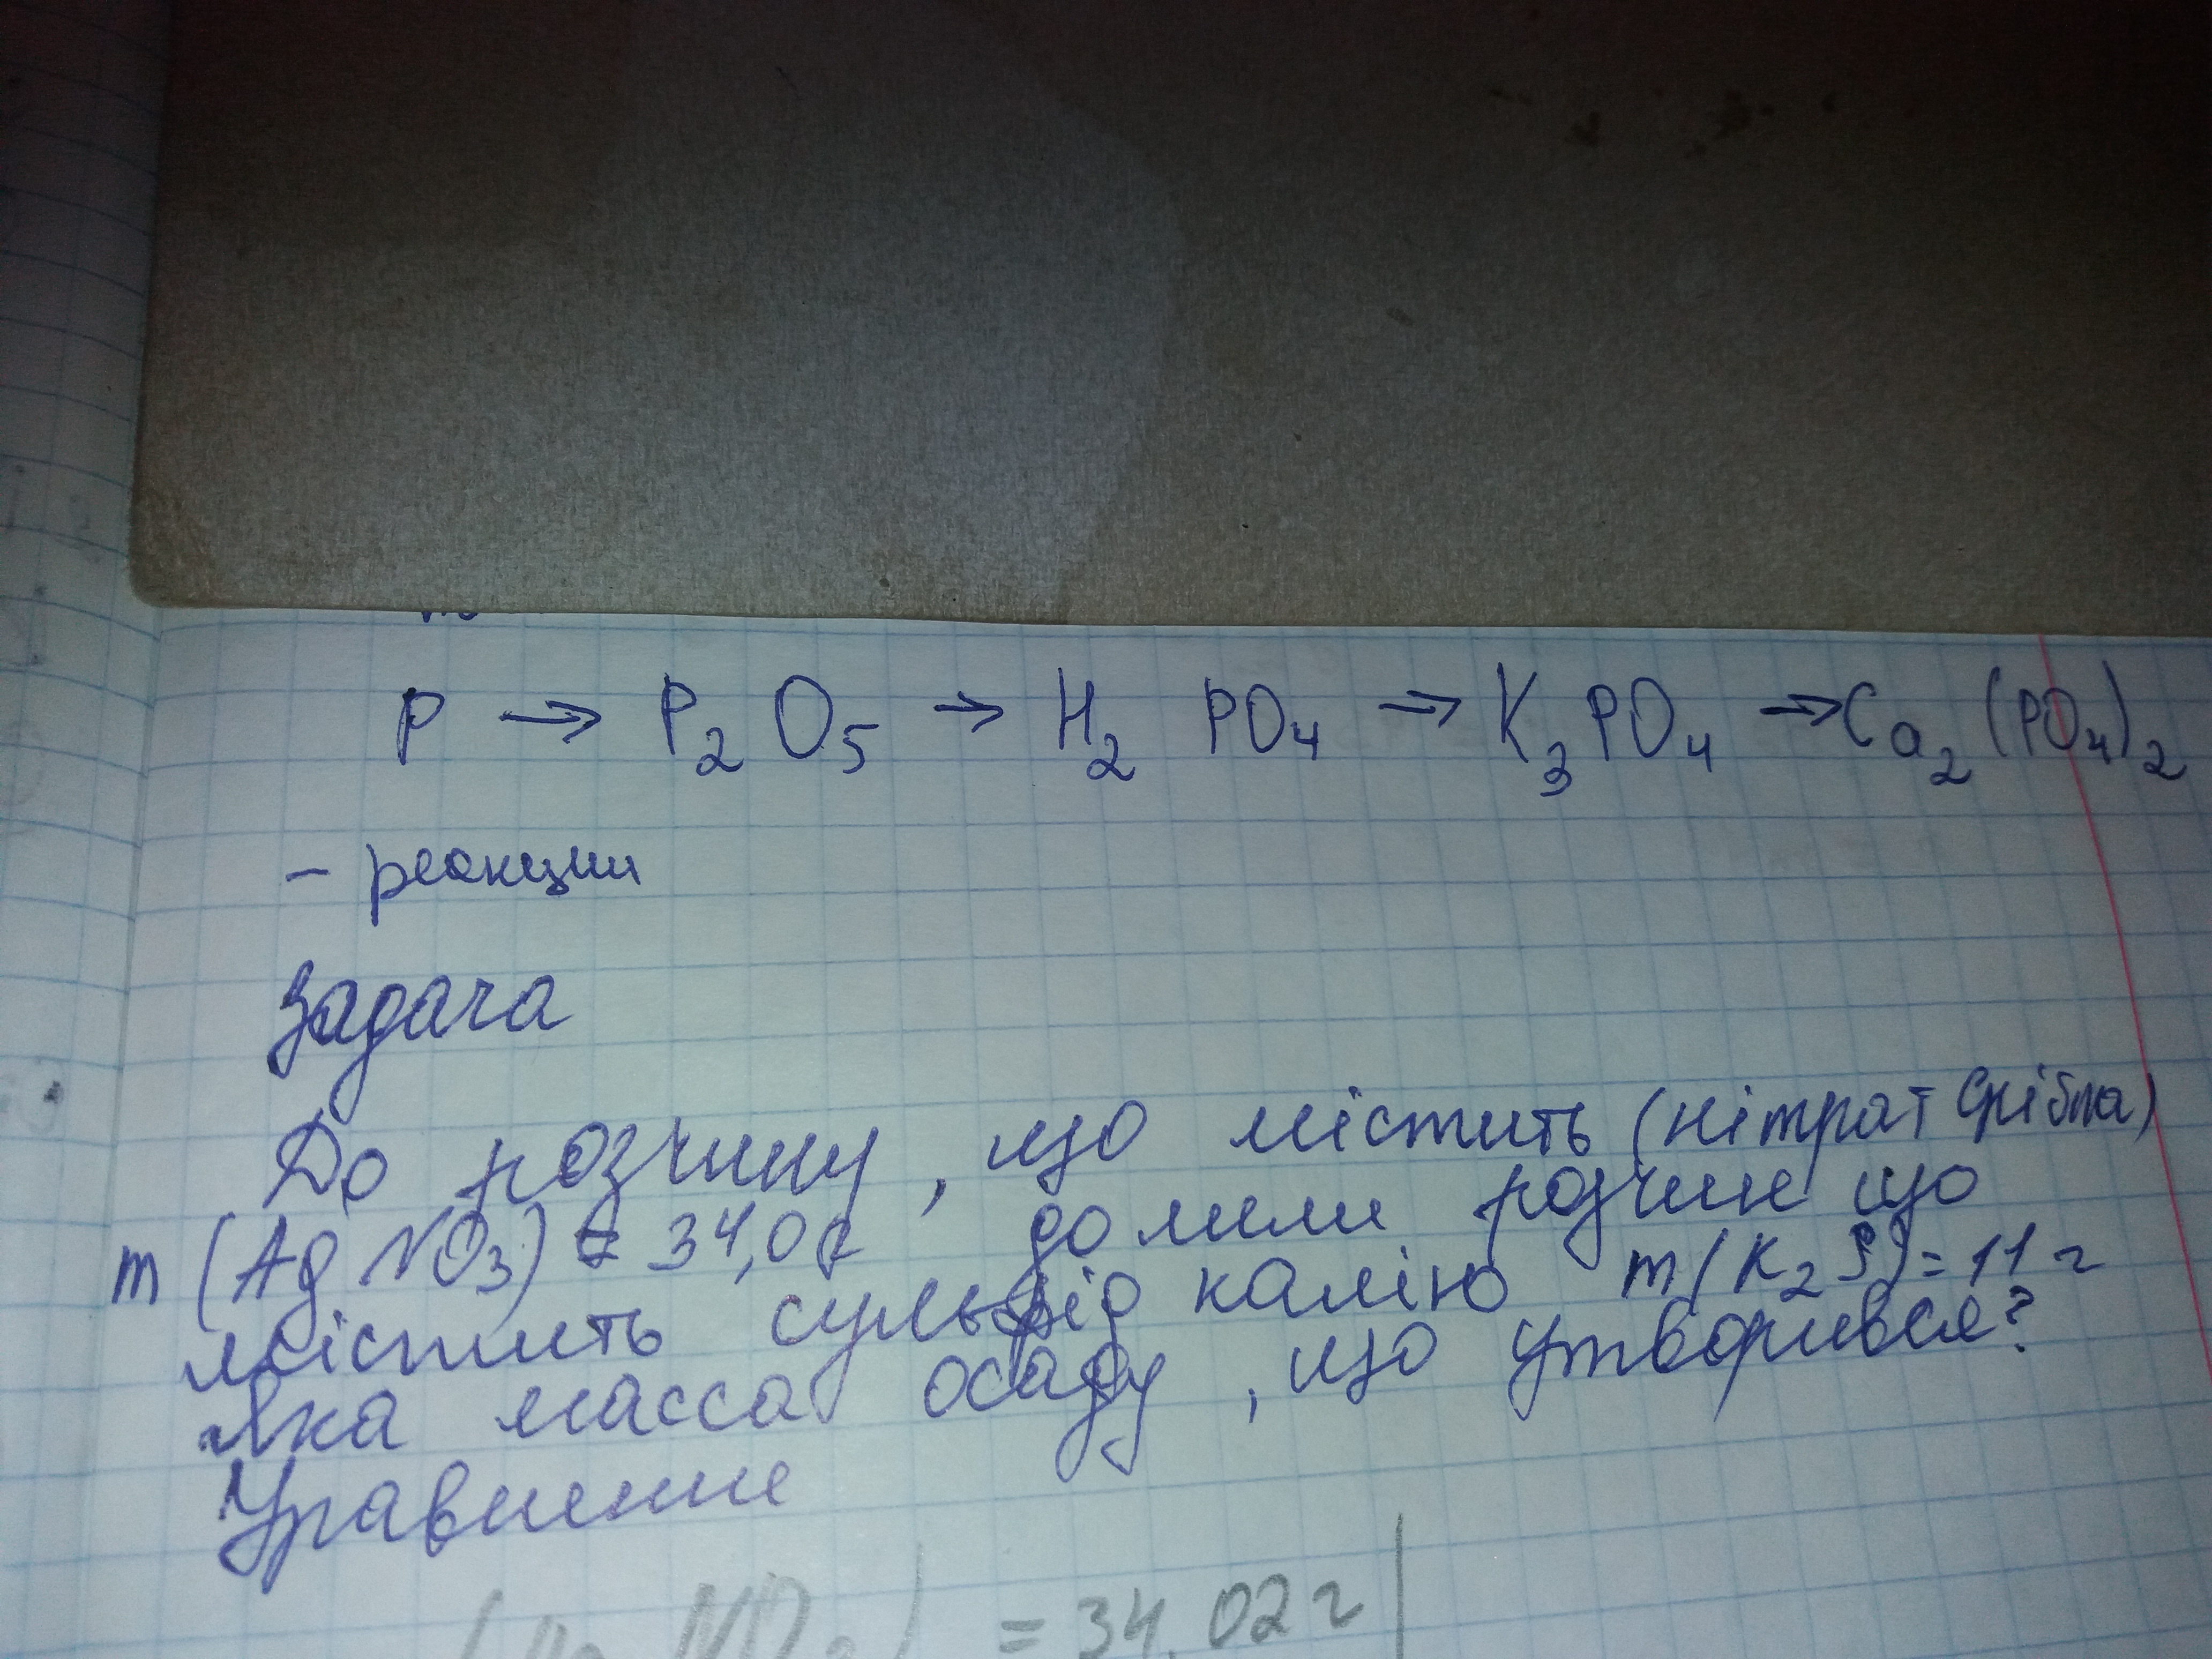 P → P₂O₅ → H₂ PO₄ → K₃PO₄ → Ca₂(PO₄)₂
– реакции
Задача
До розчину, що містить (нітрат срібла)
m(AgNO₃) = 34,0 г долили розчин що
містить сульфід калію m(K₂S) = 11 г
Яка масса осаду, що утворився?
Уравнение
= 34,02 г